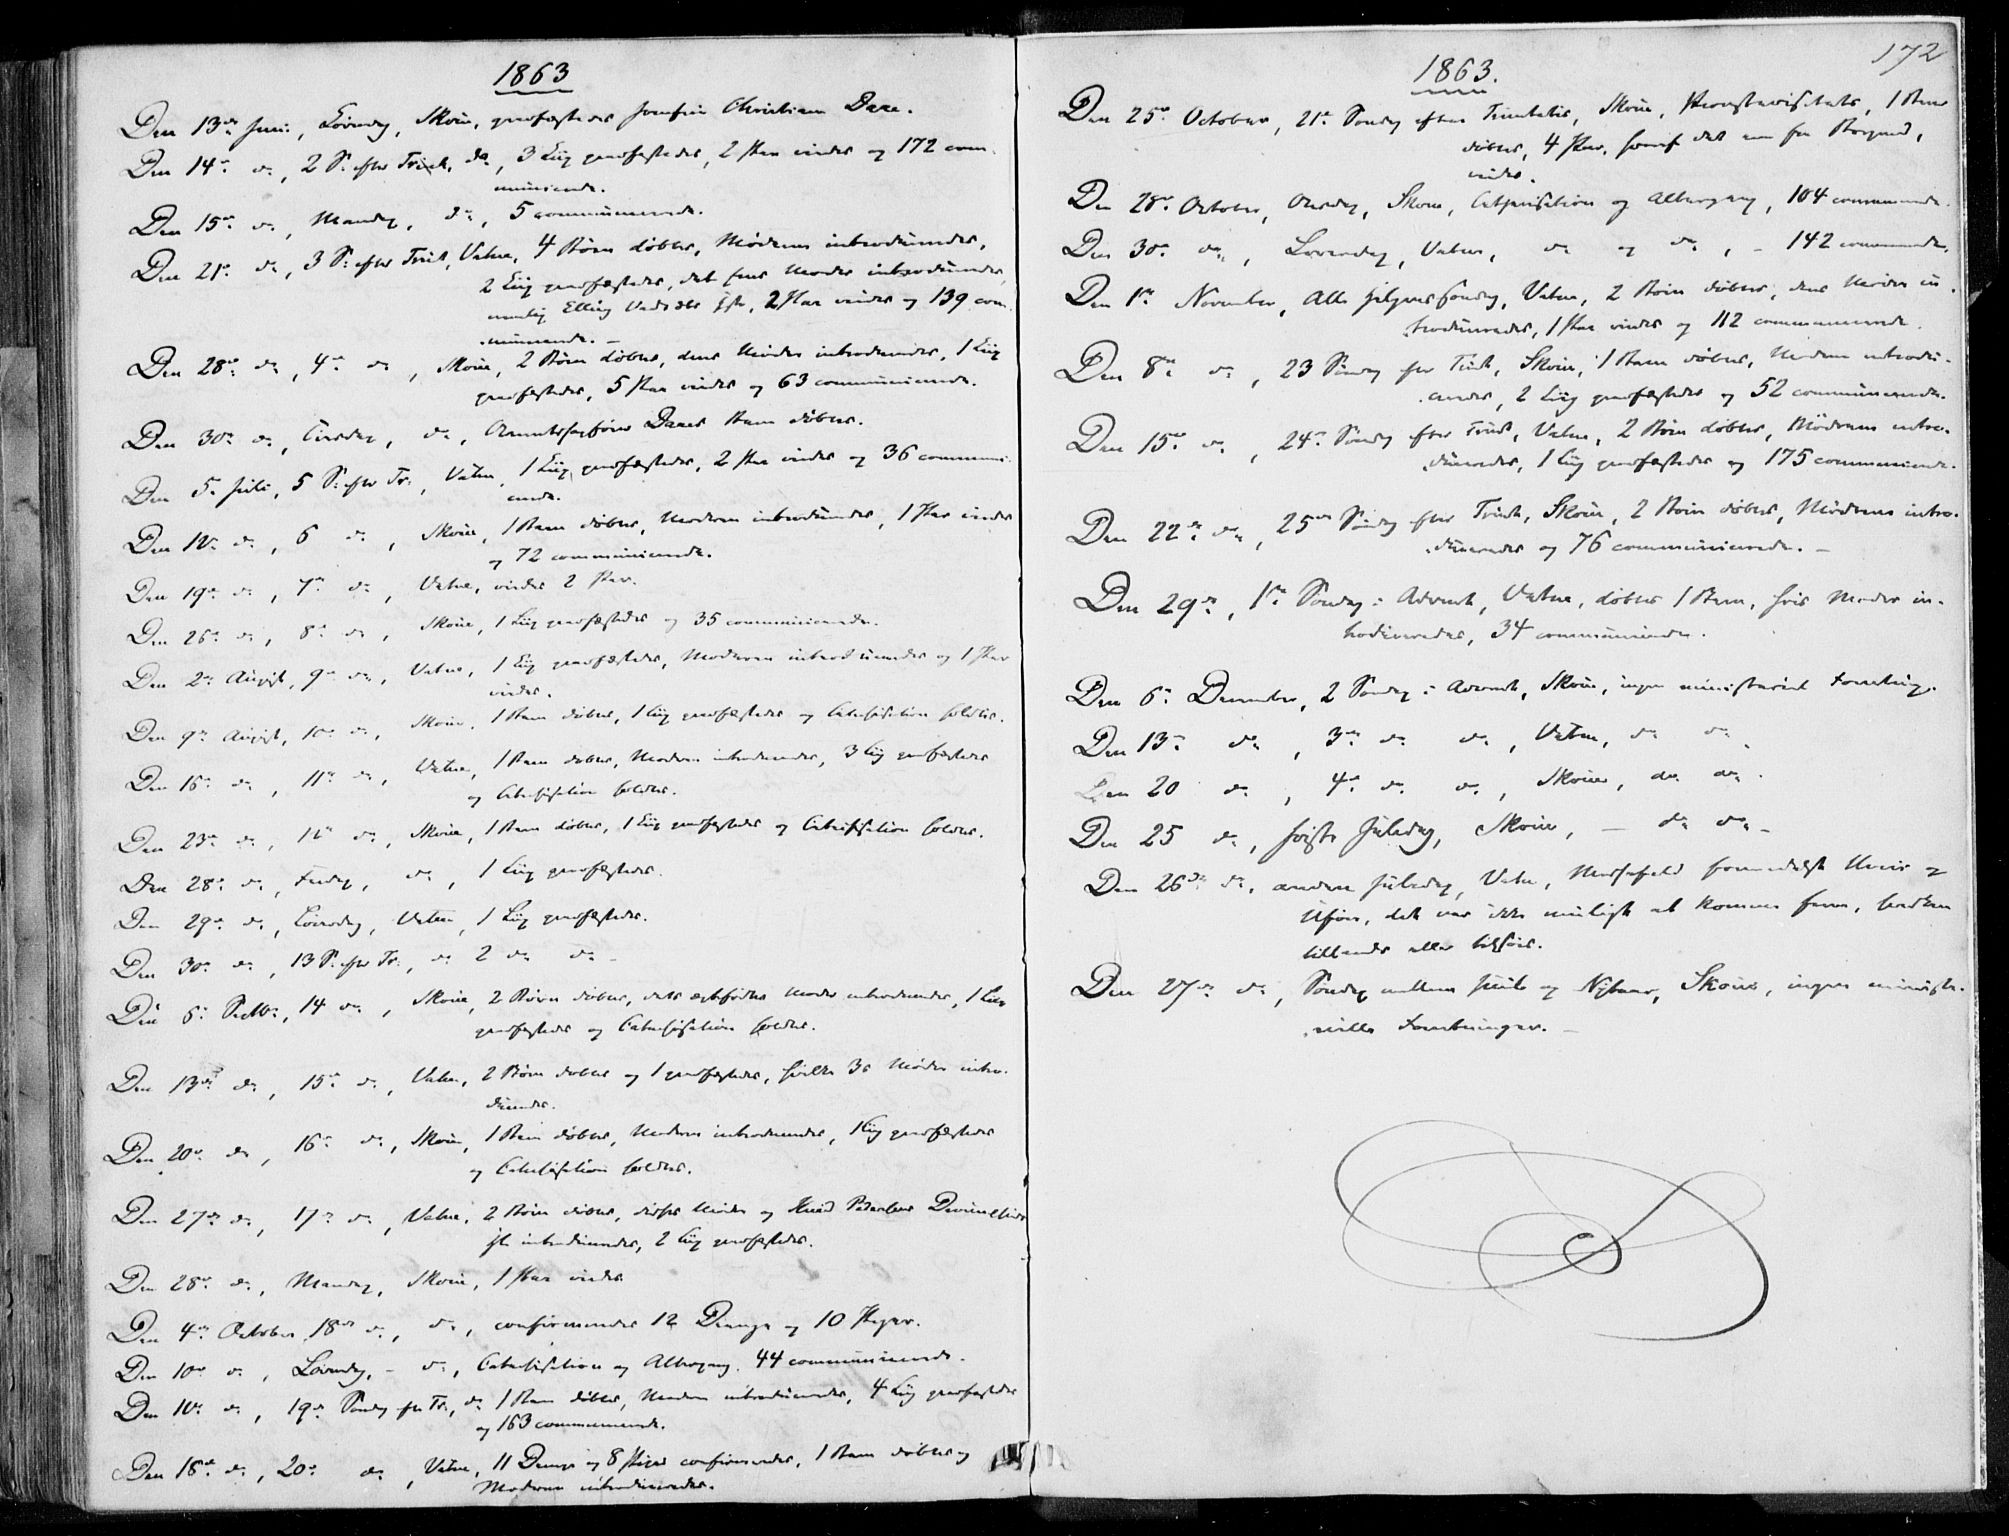 1863
Den 13de Juni, Löverdag, Skoue, jordfæstedes Christian Daae.
Den 14de do, 2 S. efter Trinit., do, 3 Liig jordfæstedes, 2 Par viedes og 172 com-
municerede.
Den 15de do, Mandag, do, 5 communicerede.
Den 21de do, 3 S. efter Trinit, Vatne, 4 Börn döbtes, Mödrene introduceredes,
2 Liig jordfæstedes, det enes Moder introduceredes,
nemlig Elling, 2 Par viedes og 139 com-
municerede. -
Den 28de do, 4de do, Skoue, 2 Börn döbtes, deres Mödre introduceredes, 1 Liig
jordfæstedes, 5 Par viedes og 63 communicerede.
Den 30te do, Tirsdag, do, Daaes Barn döbtes.
Den 5te Juli, 5 S. efter Tr., Vatne, 1 Liig jordfæstedes, 2 Par viedes og 36 communi-
cerede.
Den 12te do, 6 do, Skoue, 1 Barn döbtes, Moderen introduceredes, 1 Par viedes
og 72 communicerede.
Den 19de do, 7de do, Vatne, viedes 2 Par.
Den 26de do, 8de do, Skoue, 1 Liig jordfæstedes og 35 communicerede.
Den 2den August, 9de do, Vatne, 1 Liig jordfæstedes, Moderen introduceredes og 1 Par
viedes.
Den 9de August, 10de do, Skoue, 1 Barn döbtes, 1 Liig jordfæstedes og Catechisation holdtes.
Den 16de do, 11te do, Vatne, 1 Barn döbtes, Moderen introduceredes, 3 Liig jordfæstedes
og Catechisation holdtes.
Den 23de do, 12te do, Skoue, 1 Barn döbtes, 1 Liig jordfæstedes og Catechisation holdtes.
Den 28de do, Fredag, do, 1 Liig jordfæstedes.
Den 29de do, Löverdag, Vatne, 1 Liig jordfæstedes.
Den 30te do, 13 S. efter Tr., do 2 do do -
Den 6te Septbr., 14 do, Skoue, 2 Börn döbtes, det ægtefödtes Moder introduceredes, 1 Liig
jordfæstedes og Catechisation holdtes.
Den 13de do, 15de do, Vatne, 2 Börn döbtes og 1 jordfæstedes, hvilke 3s Mödre intro-
duceredes.
Den 20de do, 16de do, Skoue, 1 Barn döbtes, Moderen introduceredes, 1 Liig jordfæstedes
og Catechisation holdtes.
Den 27de do, 17de do, Vatne, 2 Börn döbtes, disses Mödre og Knud Pedersens
introduceredes, 2 Liig jordfæstedes.
Den 28de do, Mandag, Skoue, 1 Par viedes
Den 4de October, 18de do, do, confirmeredes 12 Drenge og 10 Piger.
Den 10de do, Löverdag, - do, Catechisation og Altergang. 44 communicerede.
Den 11te do, 19de Söndag efter Tr., do 1 Barn döbtes, Moderen introduceredes, 4 Liig jordfæstedes
og 163 communicerede.
Den 18de do, 20de do, Vatne, 11 Drenge og 8 Piger confirmeredes, 1 Barn döbtes og
Moderen introduceredes.
172
1863.
Den 25de October, 21de Söndag efter Trinitatis, Skoue, Provstevisitats, 1 Barn
döbtes, 4 Par, hvoraf det ene fra Borgund,
viedes.
Den 28de October, Onsdag, Skoue, Catechisation og Altergang, 104 communicerede.
Den 30te do, Löverdag, Vatne, do og do, - 142 communicerede.
Den 1ste November, Alle Helgens Söndag, Vatne, 2 Börn döbtes, deres Mödre in-
troduceredes, 1 Par viedes og 112 communicerede.
Den 8de do, 23 Söndag efter Trinit, Skoue, 1 Barn döbtes, Moderen introdu-
ceredes, 2 Liig jordfæstedes og 52 communicerede.
Den 15de do, 24de Söndag efter Trinit, Vatne, 2 Börn döbtes, Mödrene intro-
duceredes, 1 Liig jordfæstedes og 175 communicerede.
Den 22de do, 25de Söndag efter Trinit, Skoue, 2 Börn döbtes, Mödrene intro-
duceredes og 76 communicerede. -
Den 29de, 1ste Söndag i Advent, Vatne, döbtes 1 Barn, hvis Moder in-
troduceredes, 34 communicerede.
Den 6te December, 2 Söndag i Advent, Skoue, ingen ministeriel Forretning.
Den 13de do, 3die do do, Vatne, do do.
Den 20 do, 4de do do, Skoue, do do.
Den 25 do, förste Juledag, Skoue, - do do -
Den 26de do, anden Juledag, Vatne, Messefald formedelst Uveir og
Uföre, det var ikke muligt at komme frem, hverken
tillands eller tilsöes.
Den 27de do, Söndag mellem Juul og Nytaar, Skoue, ingen ministe-
rielle Forretninger. -